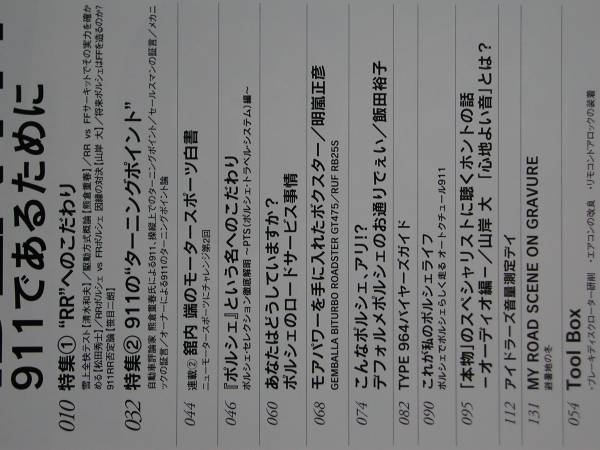 911であるために
010 特集① “RR”へのこだわり
雪上全快テスト[清水和夫]/駆動方式概論[熊倉重春]/RR vs FFサーキットでその実力を確か
める[松田秀士]/RRポルシェ vs FRポルシェ 因縁の対決[山岸 大]/将来ポルシェはFFを造るのか?
911RR否定論[笹目二朗]
032 特集② 911の“ターニングポイント”
自動車評論家 熊倉重春氏による911、操縦上でのターニングポイント/セールスマンの証言/メカニ
ックの証言/オーナーによる911のターニングポイント論
044 連載② 舘内 端のモータースポーツ白書
ニューモータースポーツにチャレンジ第2回
046 『ポルシェ』という名へのこだわり
ポルシェ・セレクション徹底解明 〜PTS(ポルシェ・トラベル・システム)編〜
060 あなたはどうしていますか?
ポルシェのロードサービス事情
068 モアパワーを手に入れたボクスター/明嵐正彦
GEMBALLA BITURBO ROADSTER GT475/RUF RB25S
074 こんなポルシェ、アリ!?
デフォルメポルシェのお通りでぇい/飯田裕子
082 TYPE 964バイヤーズガイド
090 これが私のポルシェライフ
ポルシェでポルシェらしく走る オートクチュール911
095 「本物」のスペシャリストに聴くホントの話
－オーディオ編－/山岸 大 「心地よい音」とは?
112 アイドラーズ音量測定デイ
131 MY ROAD SCENE ON GRAVURE
避暑地の冬
054 Tool Box
・ブレーキディスクローター研削 ・エアコンの改良 ・リモコンドアロックの装着